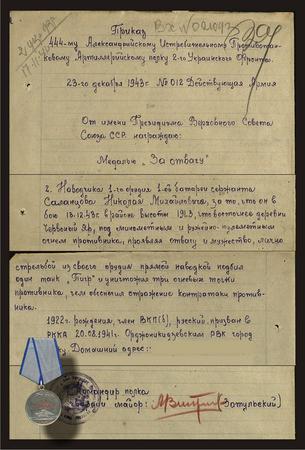 Приказ
444-му Александрийскому Истребительному Противотан-
ковому Артиллерийскому полку 2-го Украинского Фронта.
23-го декабря 1943г. № 012 Действующая Армия
От имени Президиума Верховного Совета
Союза ССР награждаю:
Медалью „За отвагу"
2. Наводчика 1-го орудия 1-ой батареи сержанта
Саланцова Николая Михайловича, за то, что он в
бою 13.12.43г. в районе высоты 194,3, что восточнее деревни
Червоный Яр, под минометным и ружейно-пулеметным
огнем противника, проявляя отвагу и мужество, лично
стрельбой из своего орудия прямой наводкой подбил
один танк „Тигр" и уничтожил три огневых точки
противника, чем обеспечил отражение контратаки против-
ника.
1922г. рождения, член ВКП(б), русский, призван в
РККА 20.08.1941г. Орджоникидзевским РВК город
Домашний адрес:
Командир полка
майор: Затульский)